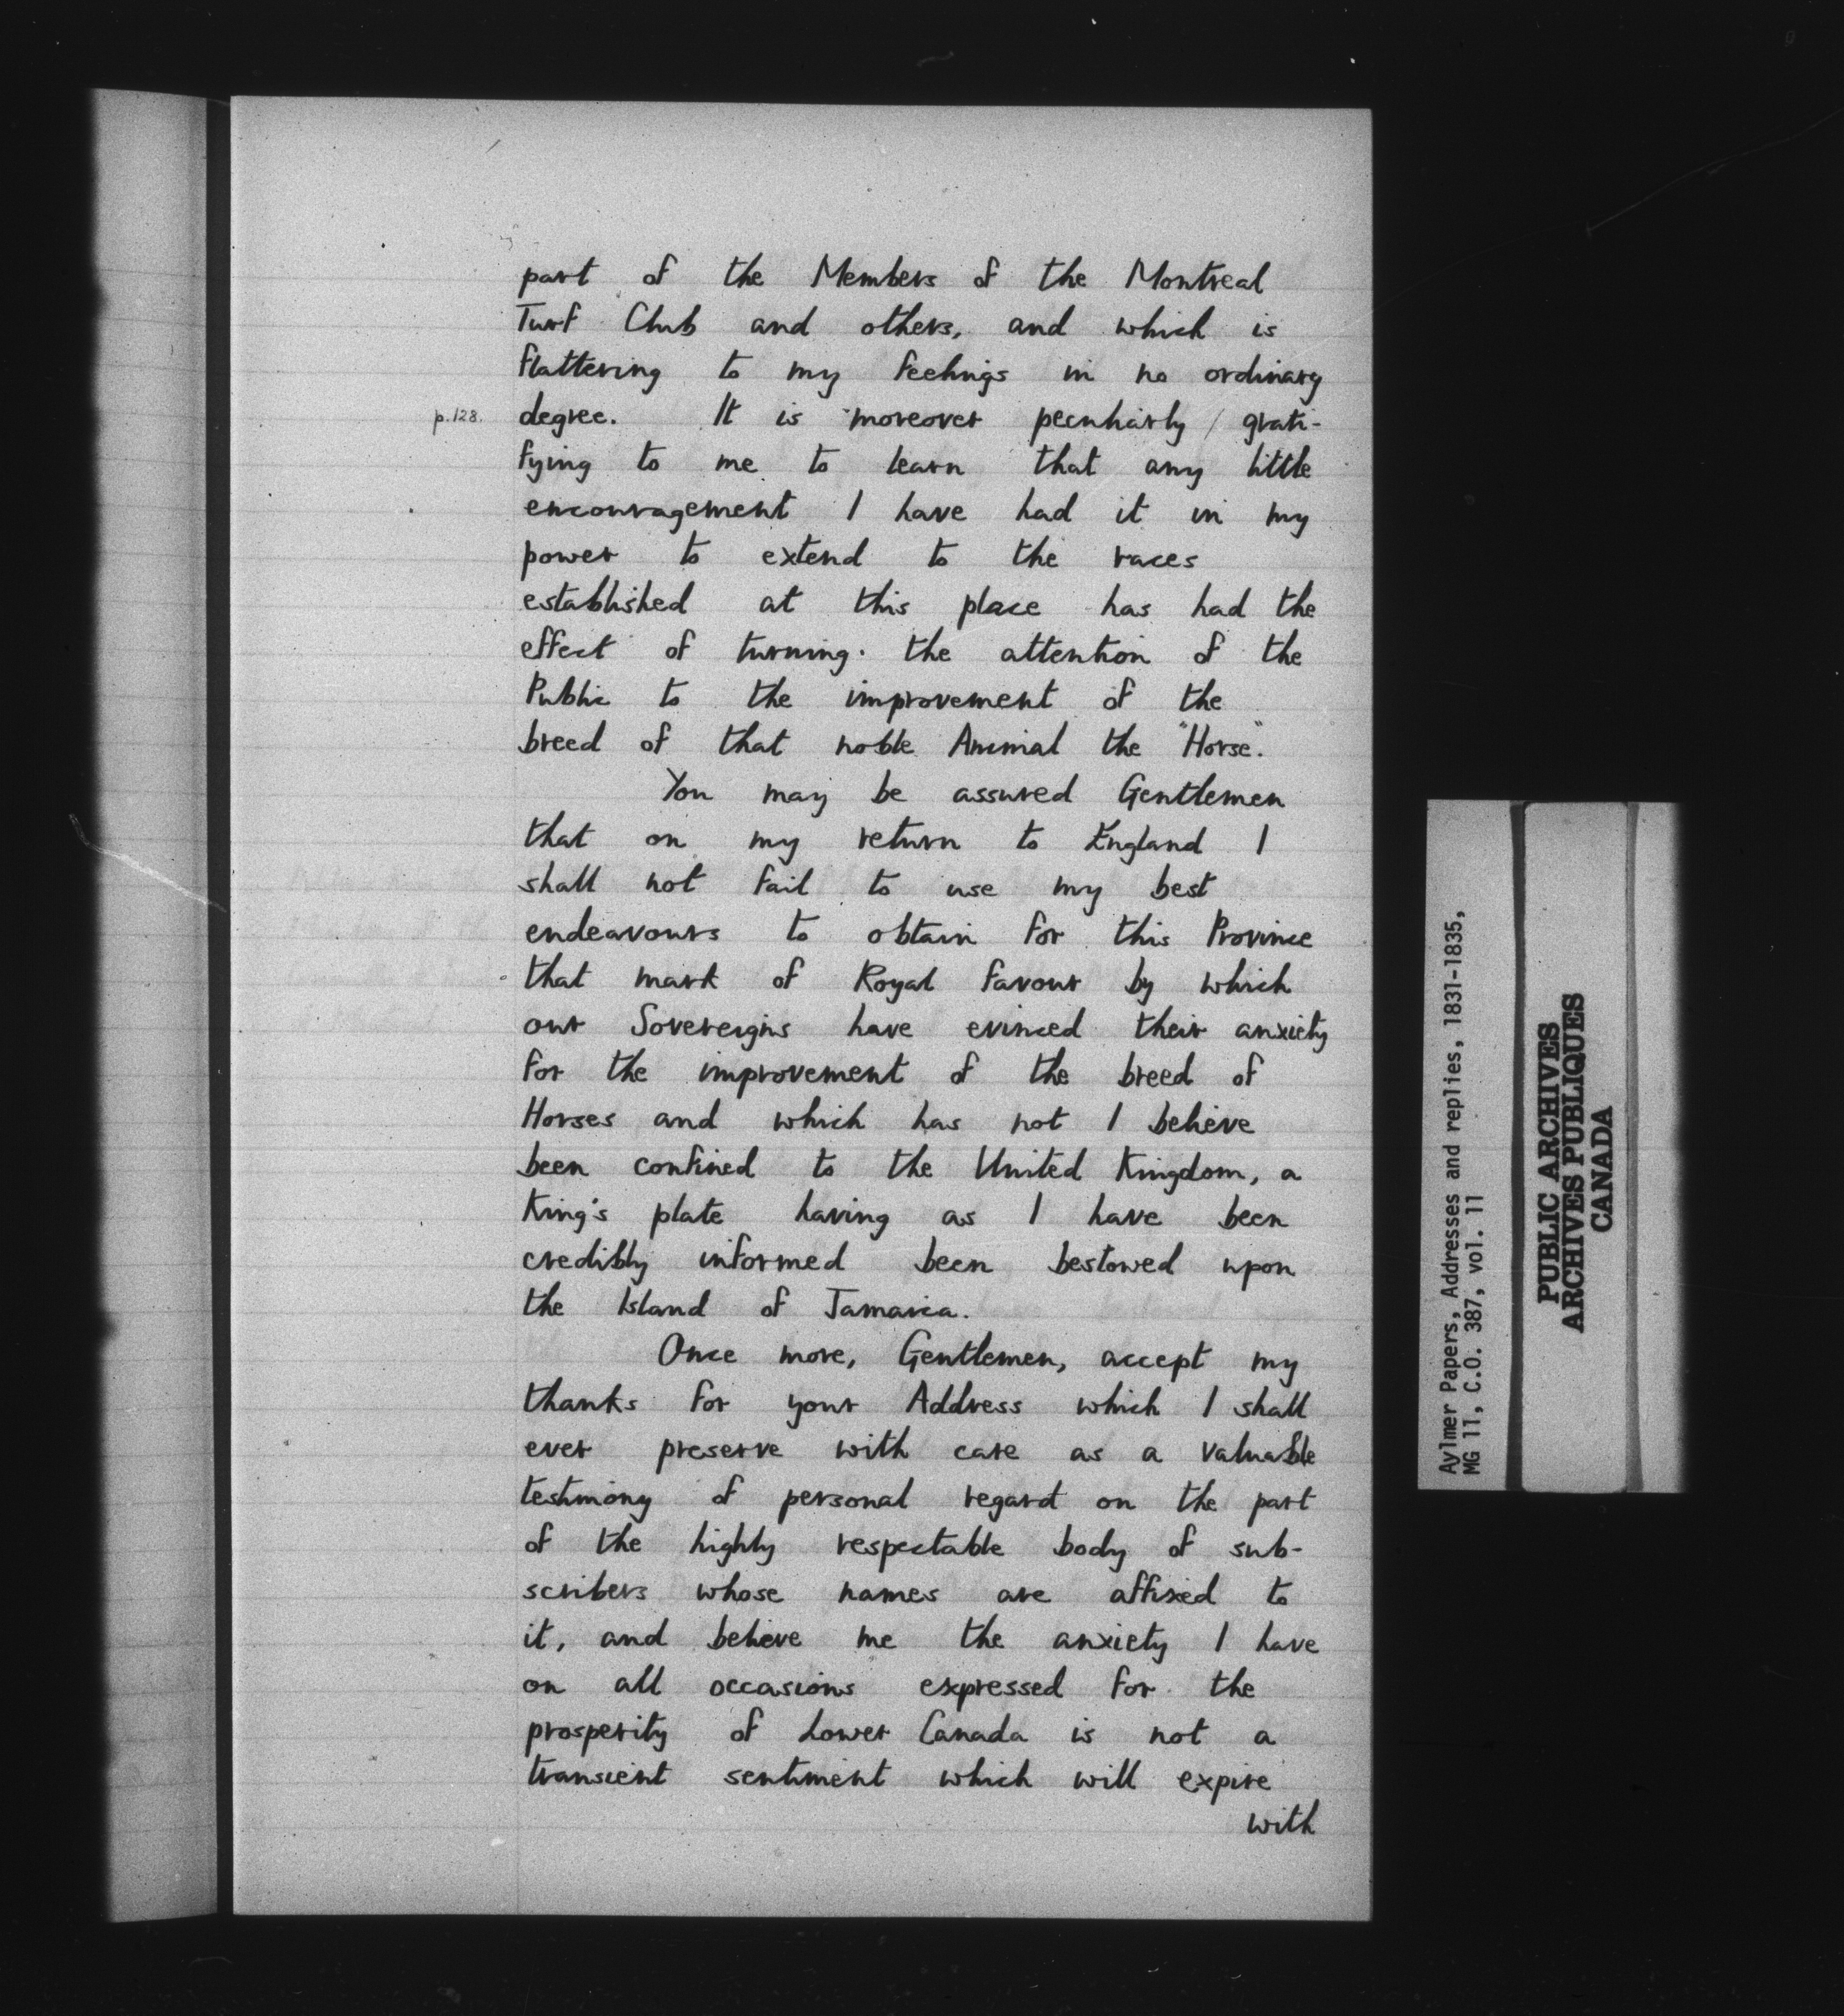 part of the Members of the Montreal
Turf Club and others, and which is
flattering to my feelings in no ordinary
p.128. degree. It is moreover peculiarly / grati-
fying to me to learn that any little
encouragement I have had it in my
power to extend to the races
established at this place has had the
effect of turning the attention of the
Public to the improvement of the
breed of that noble Animal the "Horse."
You may be assured Gentlemen
that on my return to England I
shall not fail to use my best
endeavours to obtain for this Province
that mark of Royal favour by which
our Sovereigns have evinced their anxiety
for the improvement of the breed of
Horses and which has not I believe
been confined to the United Kingdom, a
King's plate having as I have been
credibly informed been bestowed upon
the Island of Jamaica.
Once more, Gentlemen, accept my
thanks for your Address which I shall
ever preserve with care as a valuable
testimony of personal regard on the part
of the highly respectable body of sub-
scribers whose names are affixed to
it, and believe me the anxiety I have
on all occasions expressed for the
prosperity of Lower Canada is not a
transient sentiment which will expire
with
Aylmer Papers, Addresses and replies, 1831-1835,
MG 11, C.O. 387, vol. 11
PUBLIC ARCHIVES
ARCHIVES PUBLIQUES
CANADA